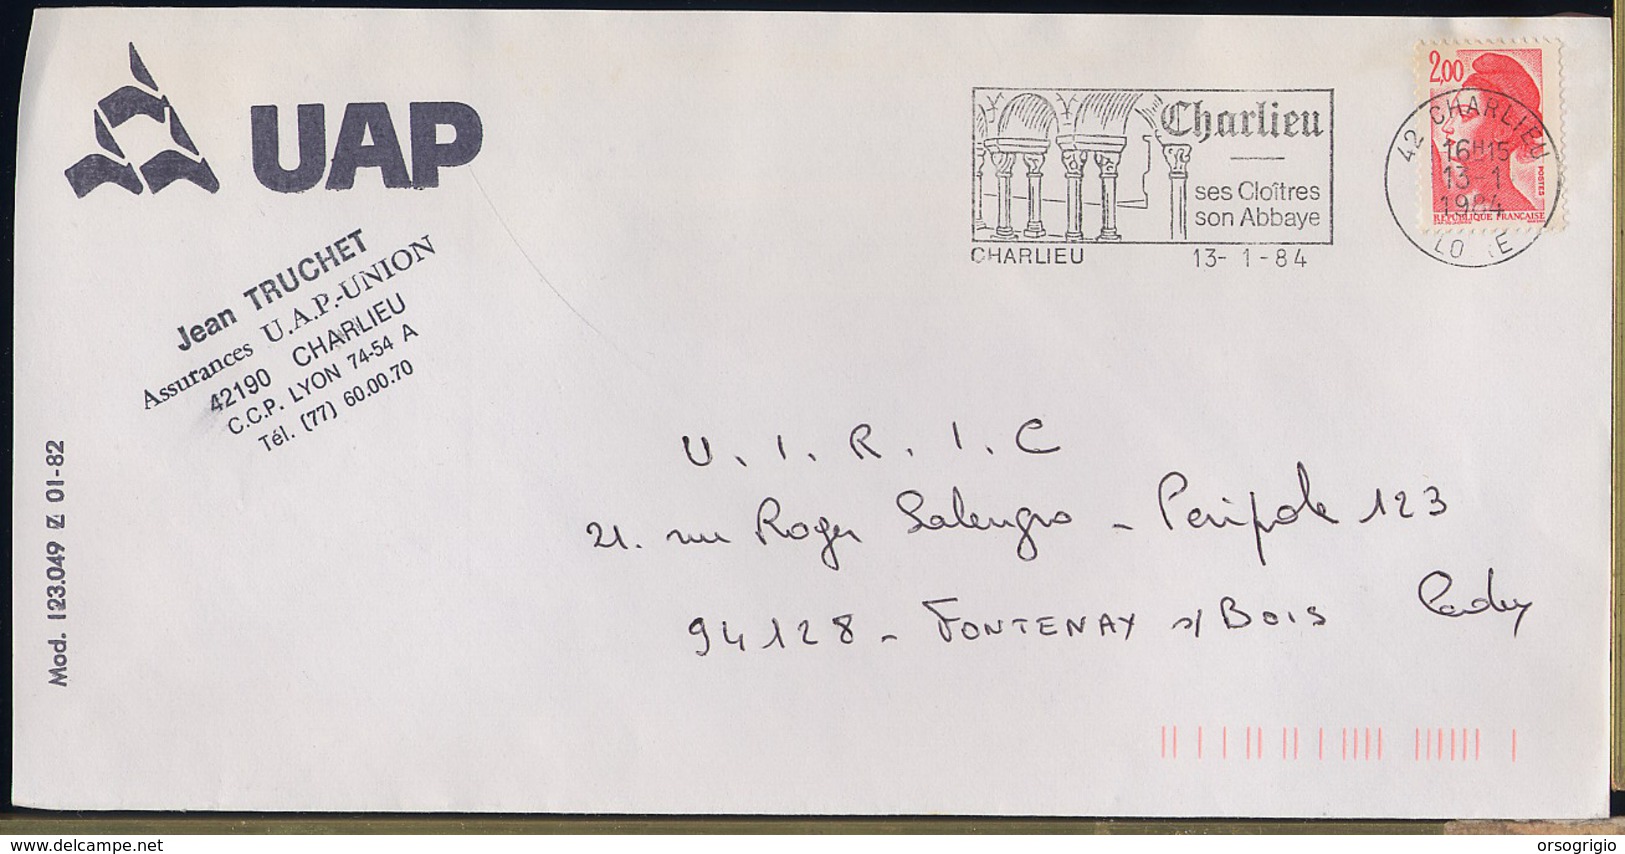 UAP
Jean TRUCHET
Assurances U.A.P.-UNION
42190 CHARLIEU
C.C.P. LYON 74-54 A
Tél. (77) 60.00.70
Mod. 123.049 Z 01-82
Charlieu
ses Cloîtres
son Abbaye
CHARLIEU 13-1-84
2,00
POSTES
RÉPUBLIQUE FRANCAISE
42 CHARLIEU
16H15
13-1
1984
LO RE
U.I.R.I.C
21. rue Roger Salengro - Peripole 123
94128 - FONTENAY s/ BOIS
delcampe.net
orsogrigio